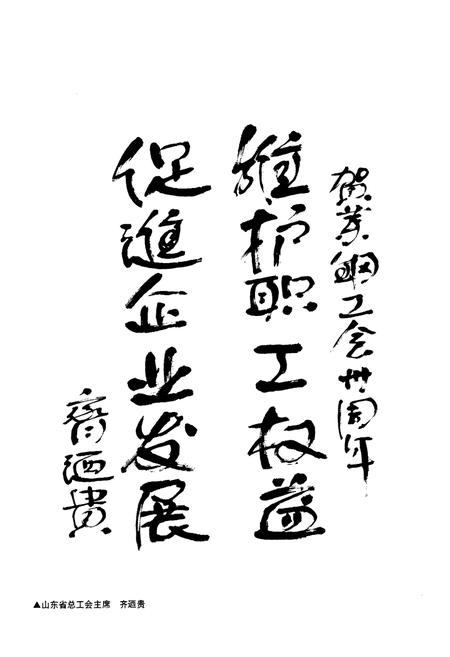 贺莱鋼工会卅周年
維护职工权益
促進企业发展
齊迺贵
▲山东省总工会主席 齐迺贵